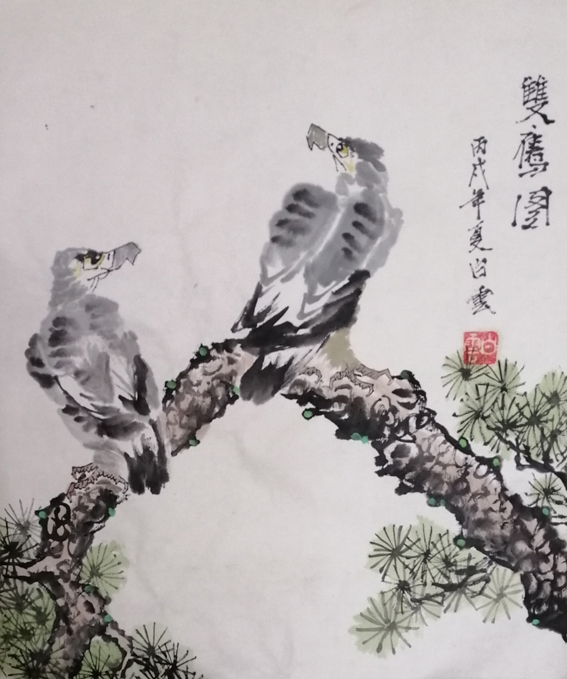 雙鹰图
丙戌年夏白雲
白雲